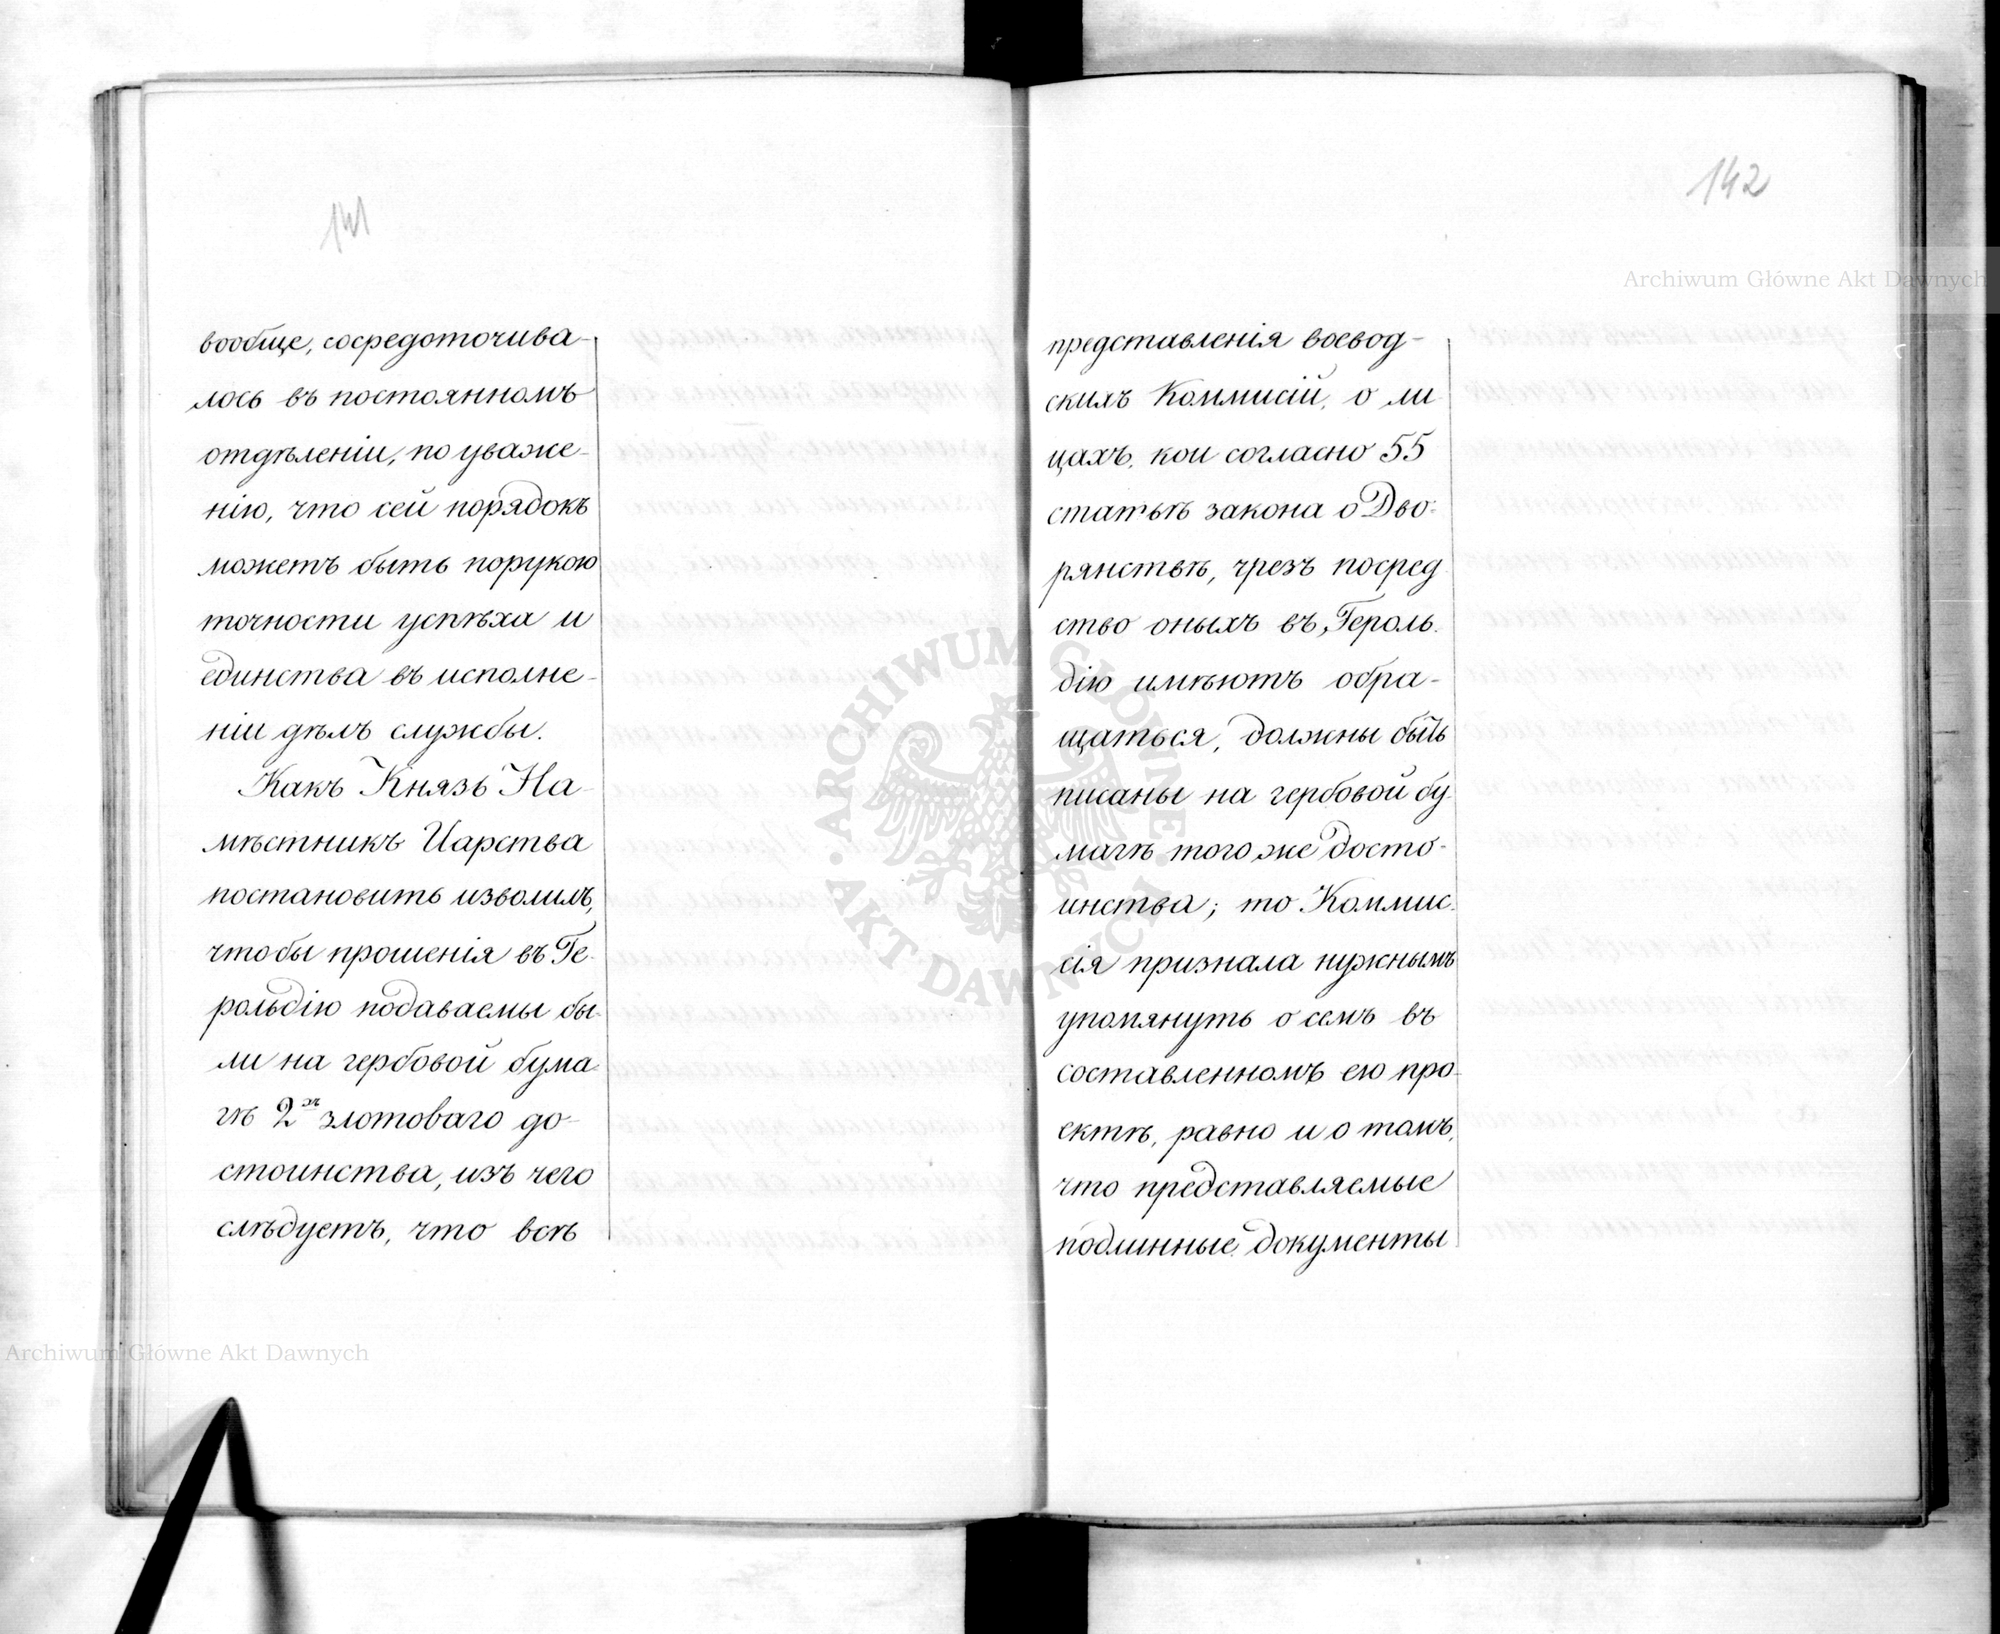 141
вообще, сосредоточива-
лось въ постоянномъ
отдѣленіи, по уваже-
нію, что сей порядокъ
можетъ быть порукою
точности успѣха и
единства въ исполне-
ніи дѣлъ службы.
Какъ Князь На-
мѣстникъ Царства
постановить изволилъ,
чтобы прошенія въ Ге-
рольдію подаваемы бы-
ли на гербовой бума
гѣ 2хъ злотоваго до-
стоинства, изъ чего
слѣдуетъ, что всѣ
142
представленія воевод-
скихъ Коммисій, о ли
цахъ, кои согласно 55
статьѣ закона о Дво-
рянствѣ, чрезъ посред
ство оныхъ въ Героль-
дію имѣютъ обра-
щаться, должны быть
писаны на гербовой бу-
магѣ того же досто-
инства; то Коммис-
сія признала нужнымъ
упомянуть о семъ въ
составленномъ ею про-
ектѣ, равно и о томъ,
что представляемые
подлинные документы
Archiwum Główne Akt Dawnych
Archiwum Główne Akt Dawnych
ARCHIWUM GŁÓWNE • AKT DAWNYCH •